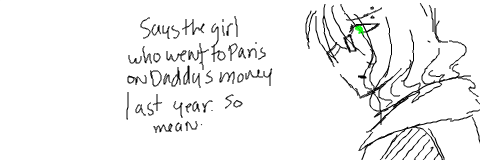 Says the girl
who went to Paris
on Daddy's money
last year. So
mean.